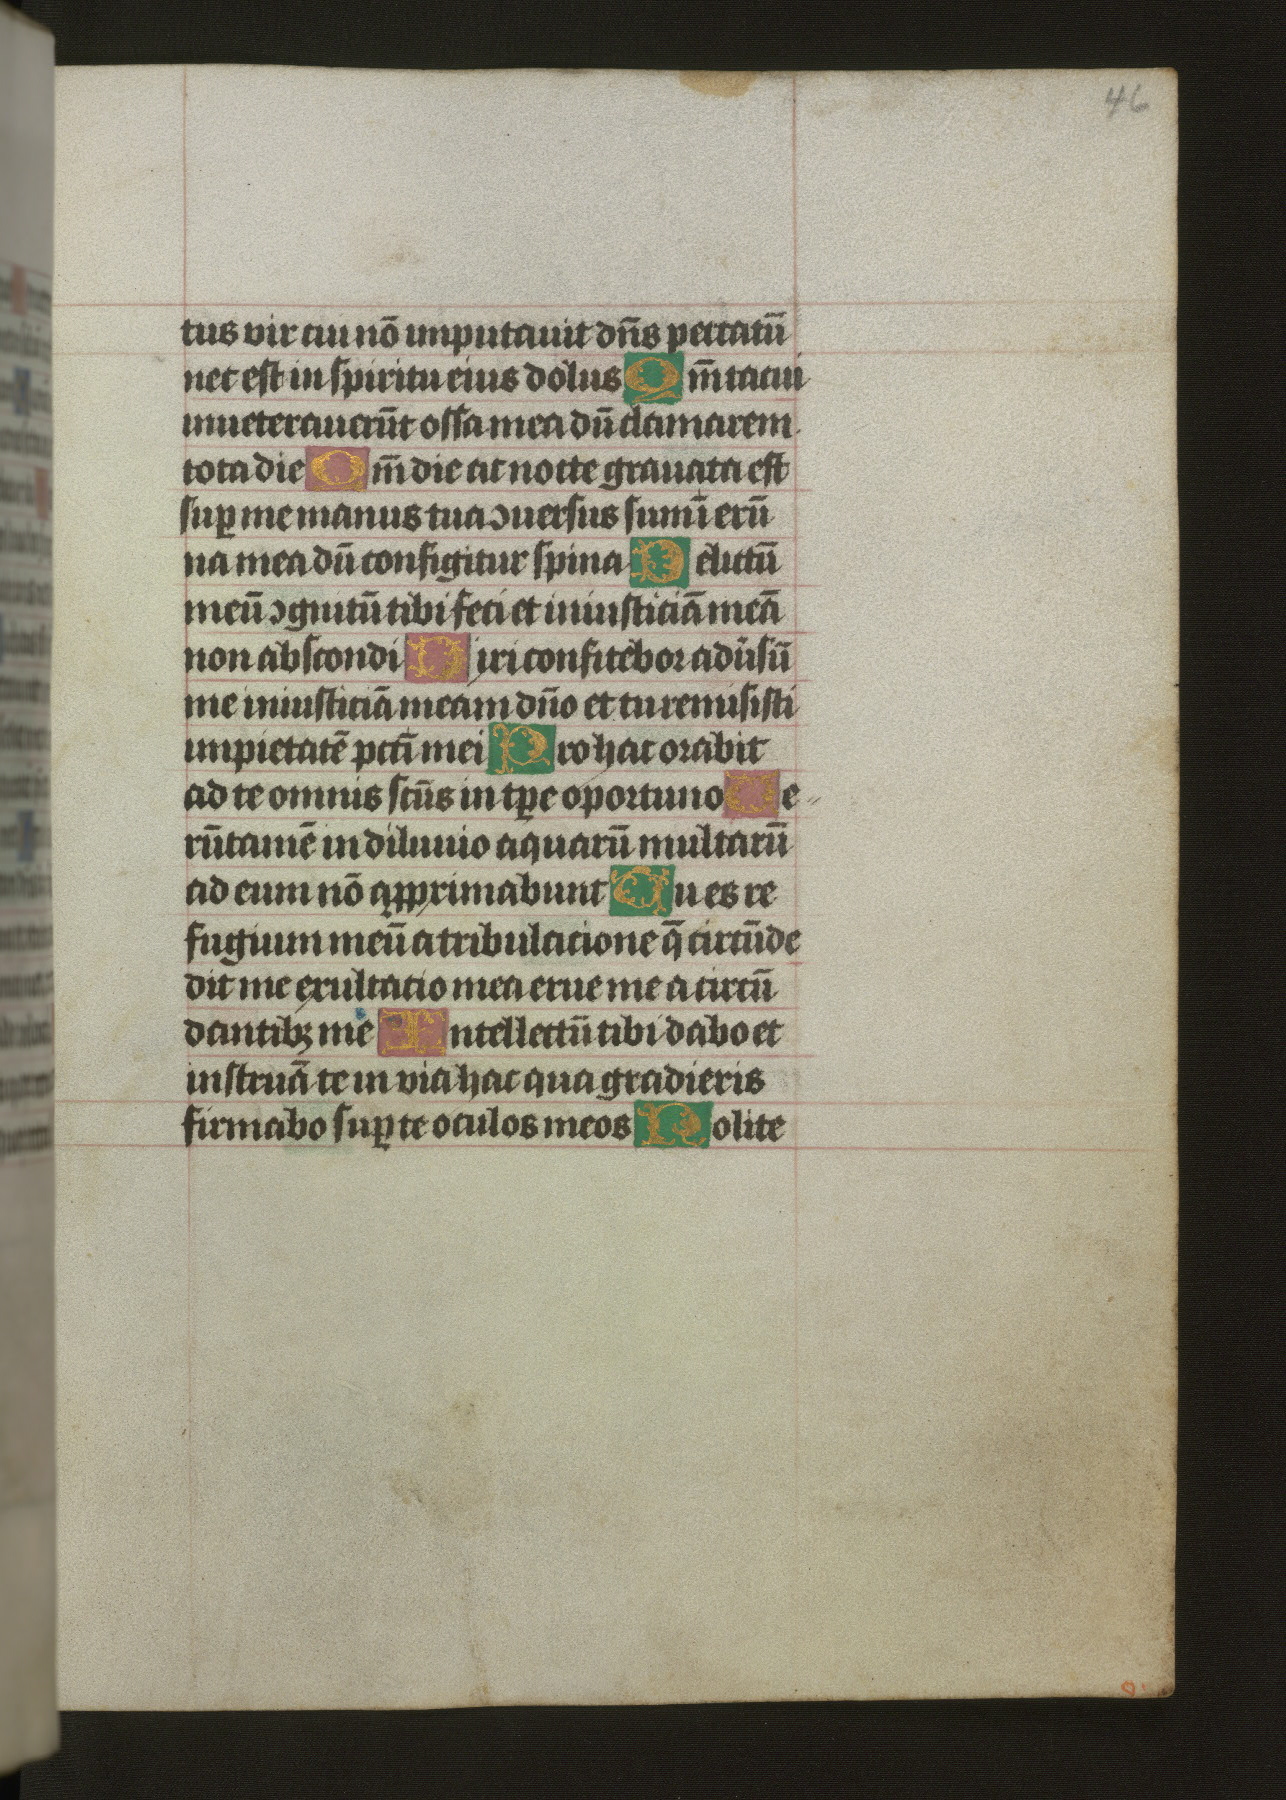 46
tus vir cui nō imputauit dn̄s peccatū
nec est in spiritu eius dolus Qm̄ tacui
inueterauerūt ossa mea dū clamarem
tota die Qm̄ die ac nocte grauata est
suꝑ me manus tua ↄuersus sum ī erū
na mea dū configitur spina Delictū
meū ↄgnitū tibi feci et iniusticiā meā
non abscondi Dixi confitebor adu̾sū
me iniusticiā meam dn̄o et tu remisisti
impietatē pcti̅ mei Pro hac orabit
ad te omnis scu̅s in tꝑe oportuno Ve
rūtamē in diluuio aquarū multarū
ad eum nō aꝓprimabunt Tu es re
fugium meū a tribulacione q̄ circūde
dit me exultatio mea erue me a circū
dantibꝫ me Intellectū tibi dabo et
instruā te in via hac qua gradieris
firmabo suꝑ te oculos meos Nolite